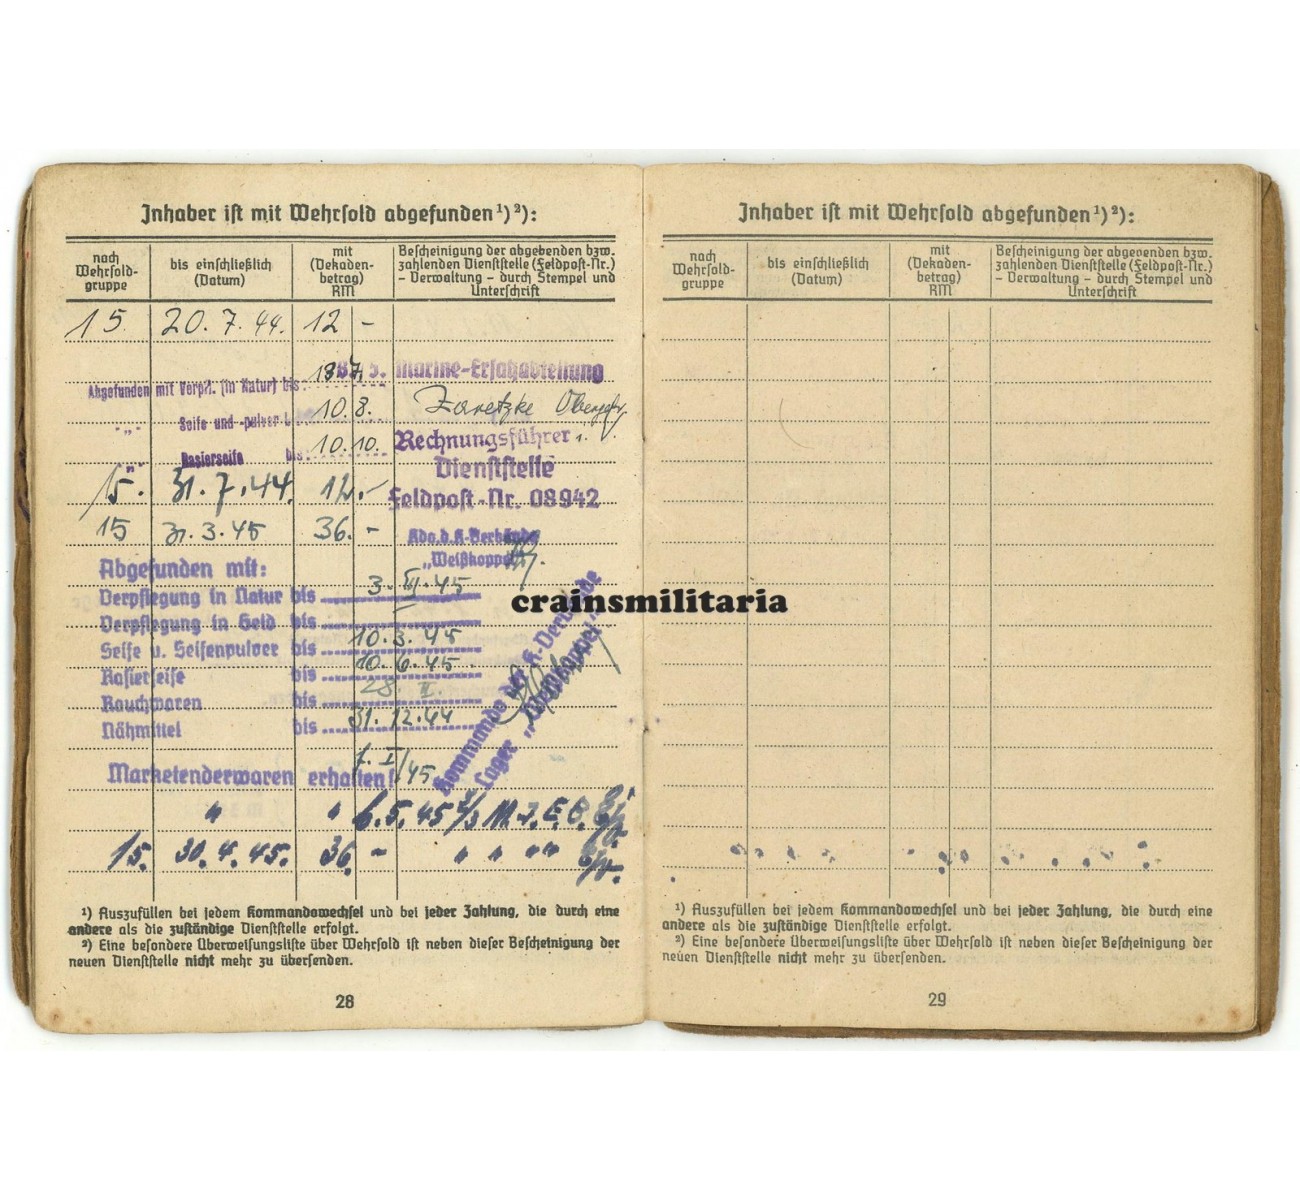 Inhaber ist mit Wehrsold abgefunden¹)²):
nach Wehrsold-gruppe
bis einschließlich (Datum)
mit (Dekaden-betrag) RM
Bescheinigung der abgebenden bzw. zahlenden Dienststelle (Feldpost-Nr.) - Verwaltung - durch Stempel und Unterschrift
15. 20.7.44. 12 -
Marine-Ersatzabteilung
Abgefunden mit Verpfl. (in Natur) bis
Seife und -pulver 10.8. Zaretzke
Rasierseife bis 10.10. Rechnungsführer
Dienststelle
15. 31.7.44. 12.- Feldpost-Nr. 08942
15 31.3.45 36.- Kdo. d. K-Verbände
"Weißkoppel"
Abgefunden mit:
Verpflegung in Natur bis 3.III.45
Verpflegung in Geld bis —
Seife u. Seifenpulver bis 10.3.45
Rasierseife bis 10.6.45
Rauchwaren bis 28.II.
Nähmittel bis 31.12.44
Kommando der K-Verbände
Lager „Weißkoppel"
Marketenderwaren erhalten 1.I/45
" " 6.5.45
15. 30.4.45. 36 - " " " "
¹) Auszufüllen bei jedem Kommandowechsel und bei jeder Zahlung, die durch eine
andere als die zuständige Dienststelle erfolgt.
²) Eine besondere Überweisungsliste über Wehrsold ist neben dieser Bescheinigung der
neuen Dienststelle nicht mehr zu übersenden.
28
crainsmilitaria
Inhaber ist mit Wehrsold abgefunden¹)²):
nach Wehrsold-gruppe
bis einschließlich (Datum)
mit (Dekaden-betrag) RM
Bescheinigung der abgebenden bzw. zahlenden Dienststelle (Feldpost-Nr.) - Verwaltung - durch Stempel und Unterschrift
¹) Auszufüllen bei jedem Kommandowechsel und bei jeder Zahlung, die durch eine
andere als die zuständige Dienststelle erfolgt.
²) Eine besondere Überweisungsliste über Wehrsold ist neben dieser Bescheinigung der
neuen Dienststelle nicht mehr zu übersenden.
29